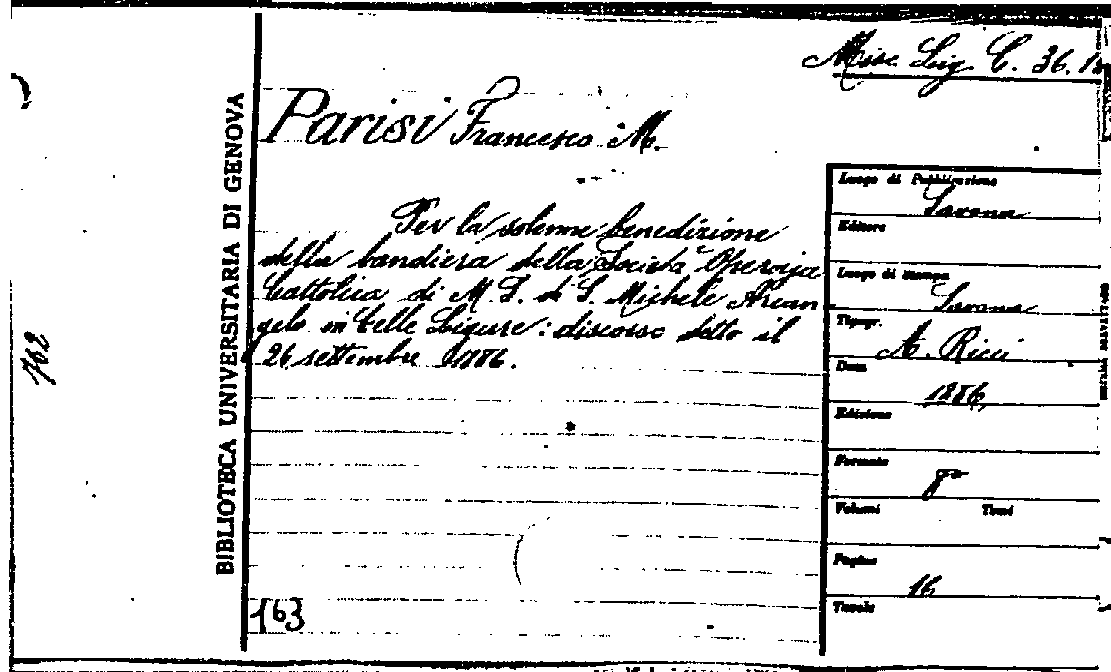 Misc. Lig. C. 36.
Parisi Francesco M.
Per la solenne benedizione
della bandiera della Società Operaja
Cattolica di M. S. di S. Michele Arcan
gelo in Celle Ligure: discorso detto il
26 settembre 1886.
163
BIBLIOTECA UNIVERSITARIA DI GENOVA
762
Luogo di Pubblicazione
Savona
Editore
Luogo di stampa
Savona
Tipogr.
A. Ricci
Data
1886
Edizione
Formato
8°
Volumi Tomi
Pagine
16
Tavole